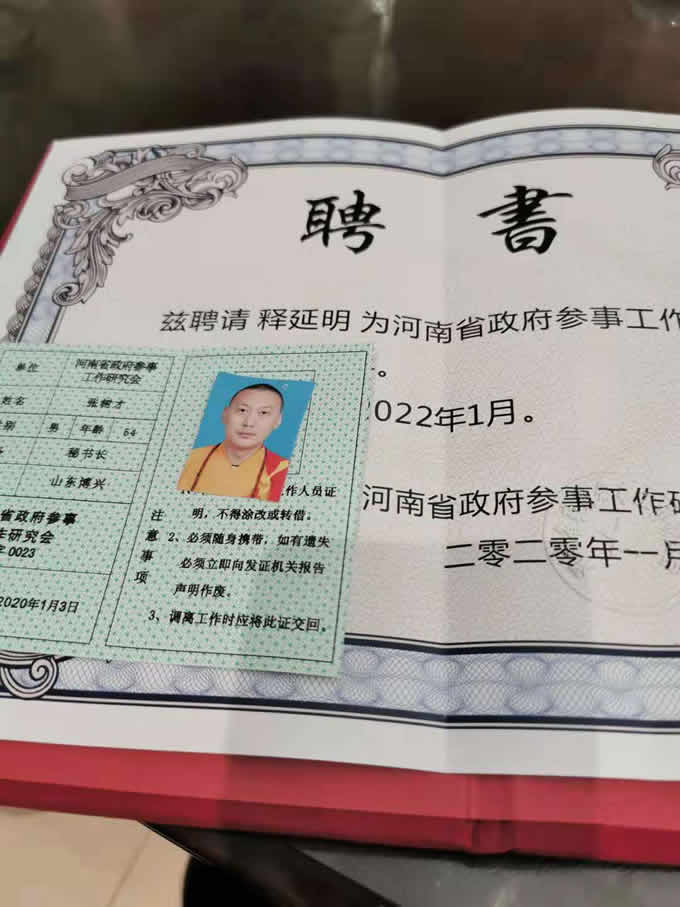 聘 書
兹聘请 释延明 为河南省政府参事工作
。
2022年1月。
河南省政府参事工作研
二零二零年一月
单位 河南省政府参事
工作研究会
姓名 张树才
性别 男 年龄 54
秘书长
山东博兴
省政府参事
作研究会
字 0023
2020年1月3日
注意事项
工作人员证
明，不得涂改或转借。
2、必须随身携带，如有遗失
必须立即向发证机关报告
声明作废。
3、调离工作时应将此证交回。